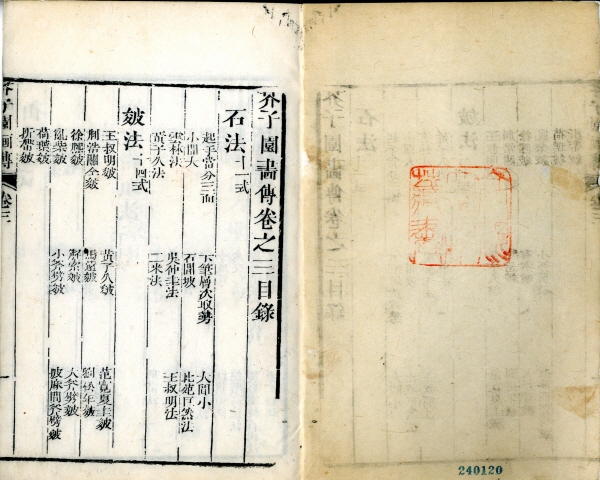 芥子園畫傳卷之三目錄
石法十一式
起手當分三面 下筆層次取勢 大間小
小間大 石間坡 北苑巨然法
雲林法 吳仲圭法 王叔明法
黃子久法 二米法
皴法十四式
王叔明皴 黃子久皴 范寬夏圭皴
荊浩關仝皴 馬遠皴 劉松年皴
徐熙皴 解索皴 大斧劈皴
亂柴皴 小斧劈皴 披麻間斧劈皴
荷葉皴
折帶皴
芥子園画傳 卷三 一
240120